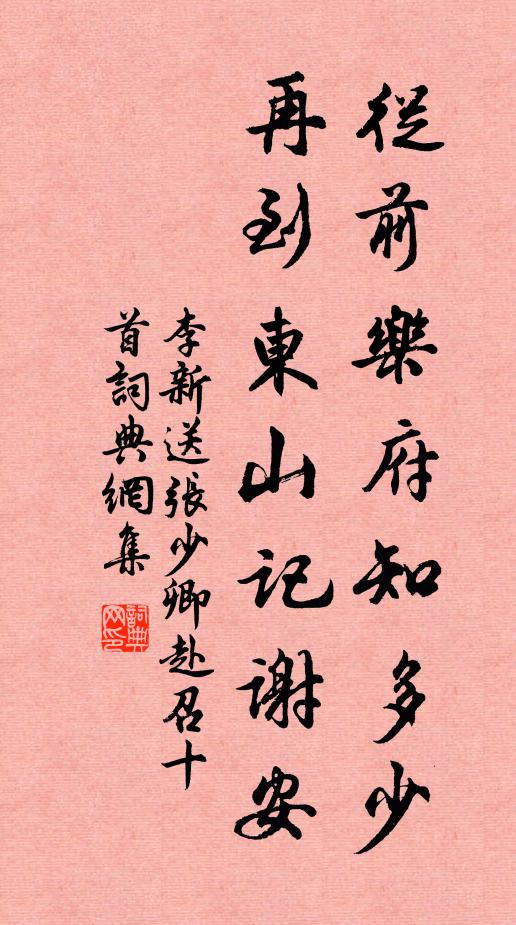 從前樂府知多少
再到東山記謝安
李新送張少卿赴召十
首詞典網集
詞典
网印